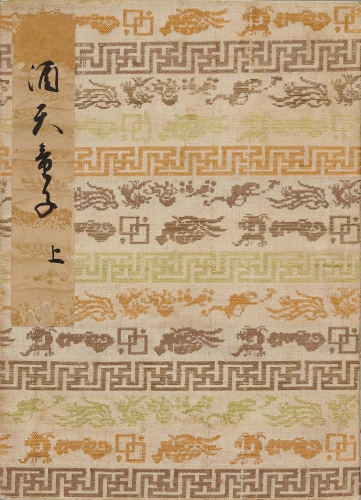 酒天童子 上